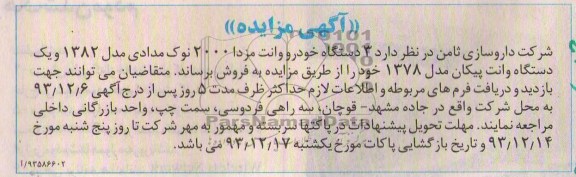 «آگهی مزایده»
شرکت داروسازی ثامن در نظر دارد ۳ دستگاه خودرو وانت مزدا ۲۰۰۰ نوک مدادی مدل ۱۳۸۲ و یک
دستگاه وانت پیکان مدل ۱۳۷۸ خود را از طریق مزایده به فروش برساند. متقاضیان می توانند جهت
بازدید و دریافت فرم های مربوطه و اطلاعات لازم حداکثر ظرف مدت ۵ روز پس از درج آگهی ۹۳/۱۲/۶
به محل شرکت واقع در جاده مشهد- قوچان، سه راهی فردوسی، سمت چپ، واحد بازرگانی داخلی
مراجعه نمایند. مهلت تحویل پیشنهادات در پاکتها سربسته و ممهور به مهر شرکت تا روز پنج شنبه مورخ
۹۳/۱۲/۱۴ و تاریخ بازگشایی پاکات مورخ یکشنبه ۹۳/۱۲/۱۷ می باشد.
/۹۳۵۸۶۶۰۲